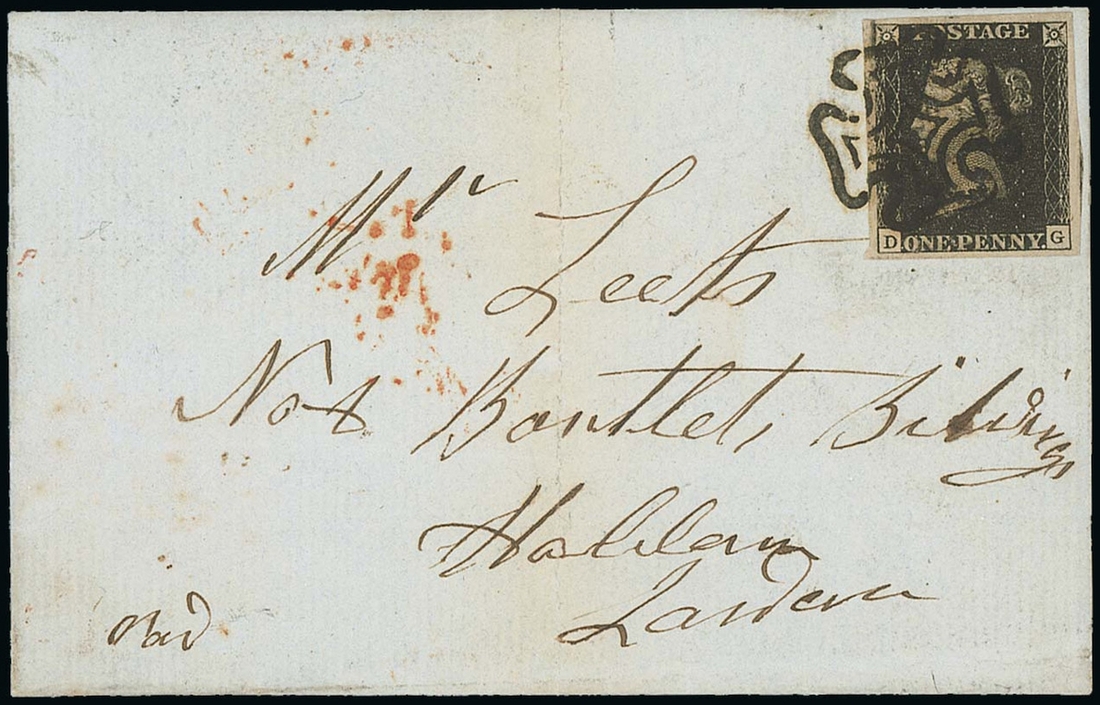 POSTAGE
D ONE PENNY G
Mr Leets
No 8 Bartlet, Bildings
Holborn
London
Paid